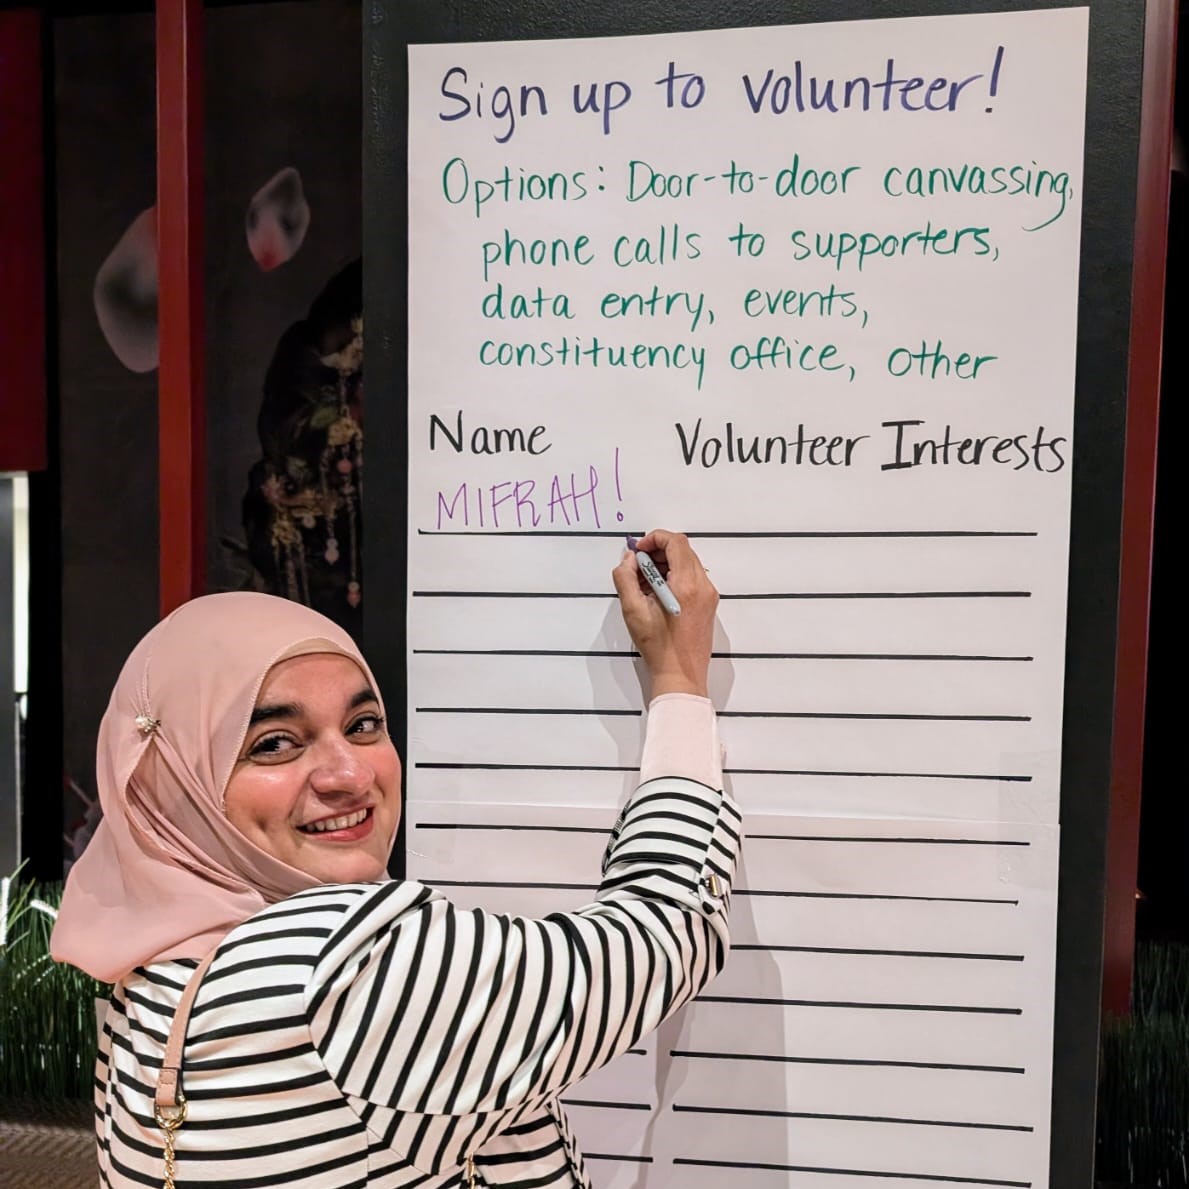 Sign up to volunteer!
Options: Door-to-door canvassing,
phone calls to supporters,
data entry, events,
constituency office, other
Name Volunteer Interests
MIFRAH!
Sharpie